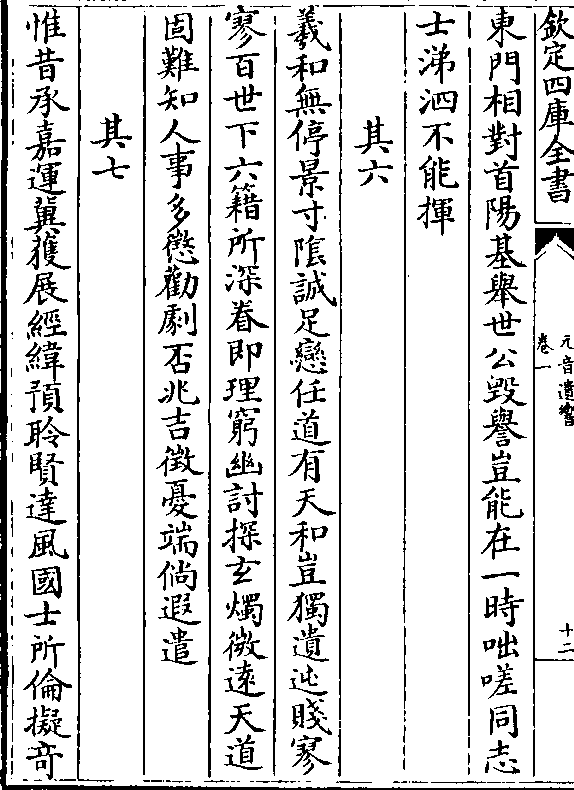 欽定四庫全書
元音遺響
卷一
十二
東門相對首陽基舉世公毀譽豈能在一時咄嗟同志
士涕泗不能揮
其六
羲和無停景寸隂誠足戀任道有天和豈獨遺迍賤寥
寥百世下六籍所深眷即理窮幽討探玄燭微逺天道
固難知人事多懲勸劇否兆吉徴憂端倘遐遣
其七
惟昔承嘉運冀獲展經緯預聆賢達風國士所倫擬竒